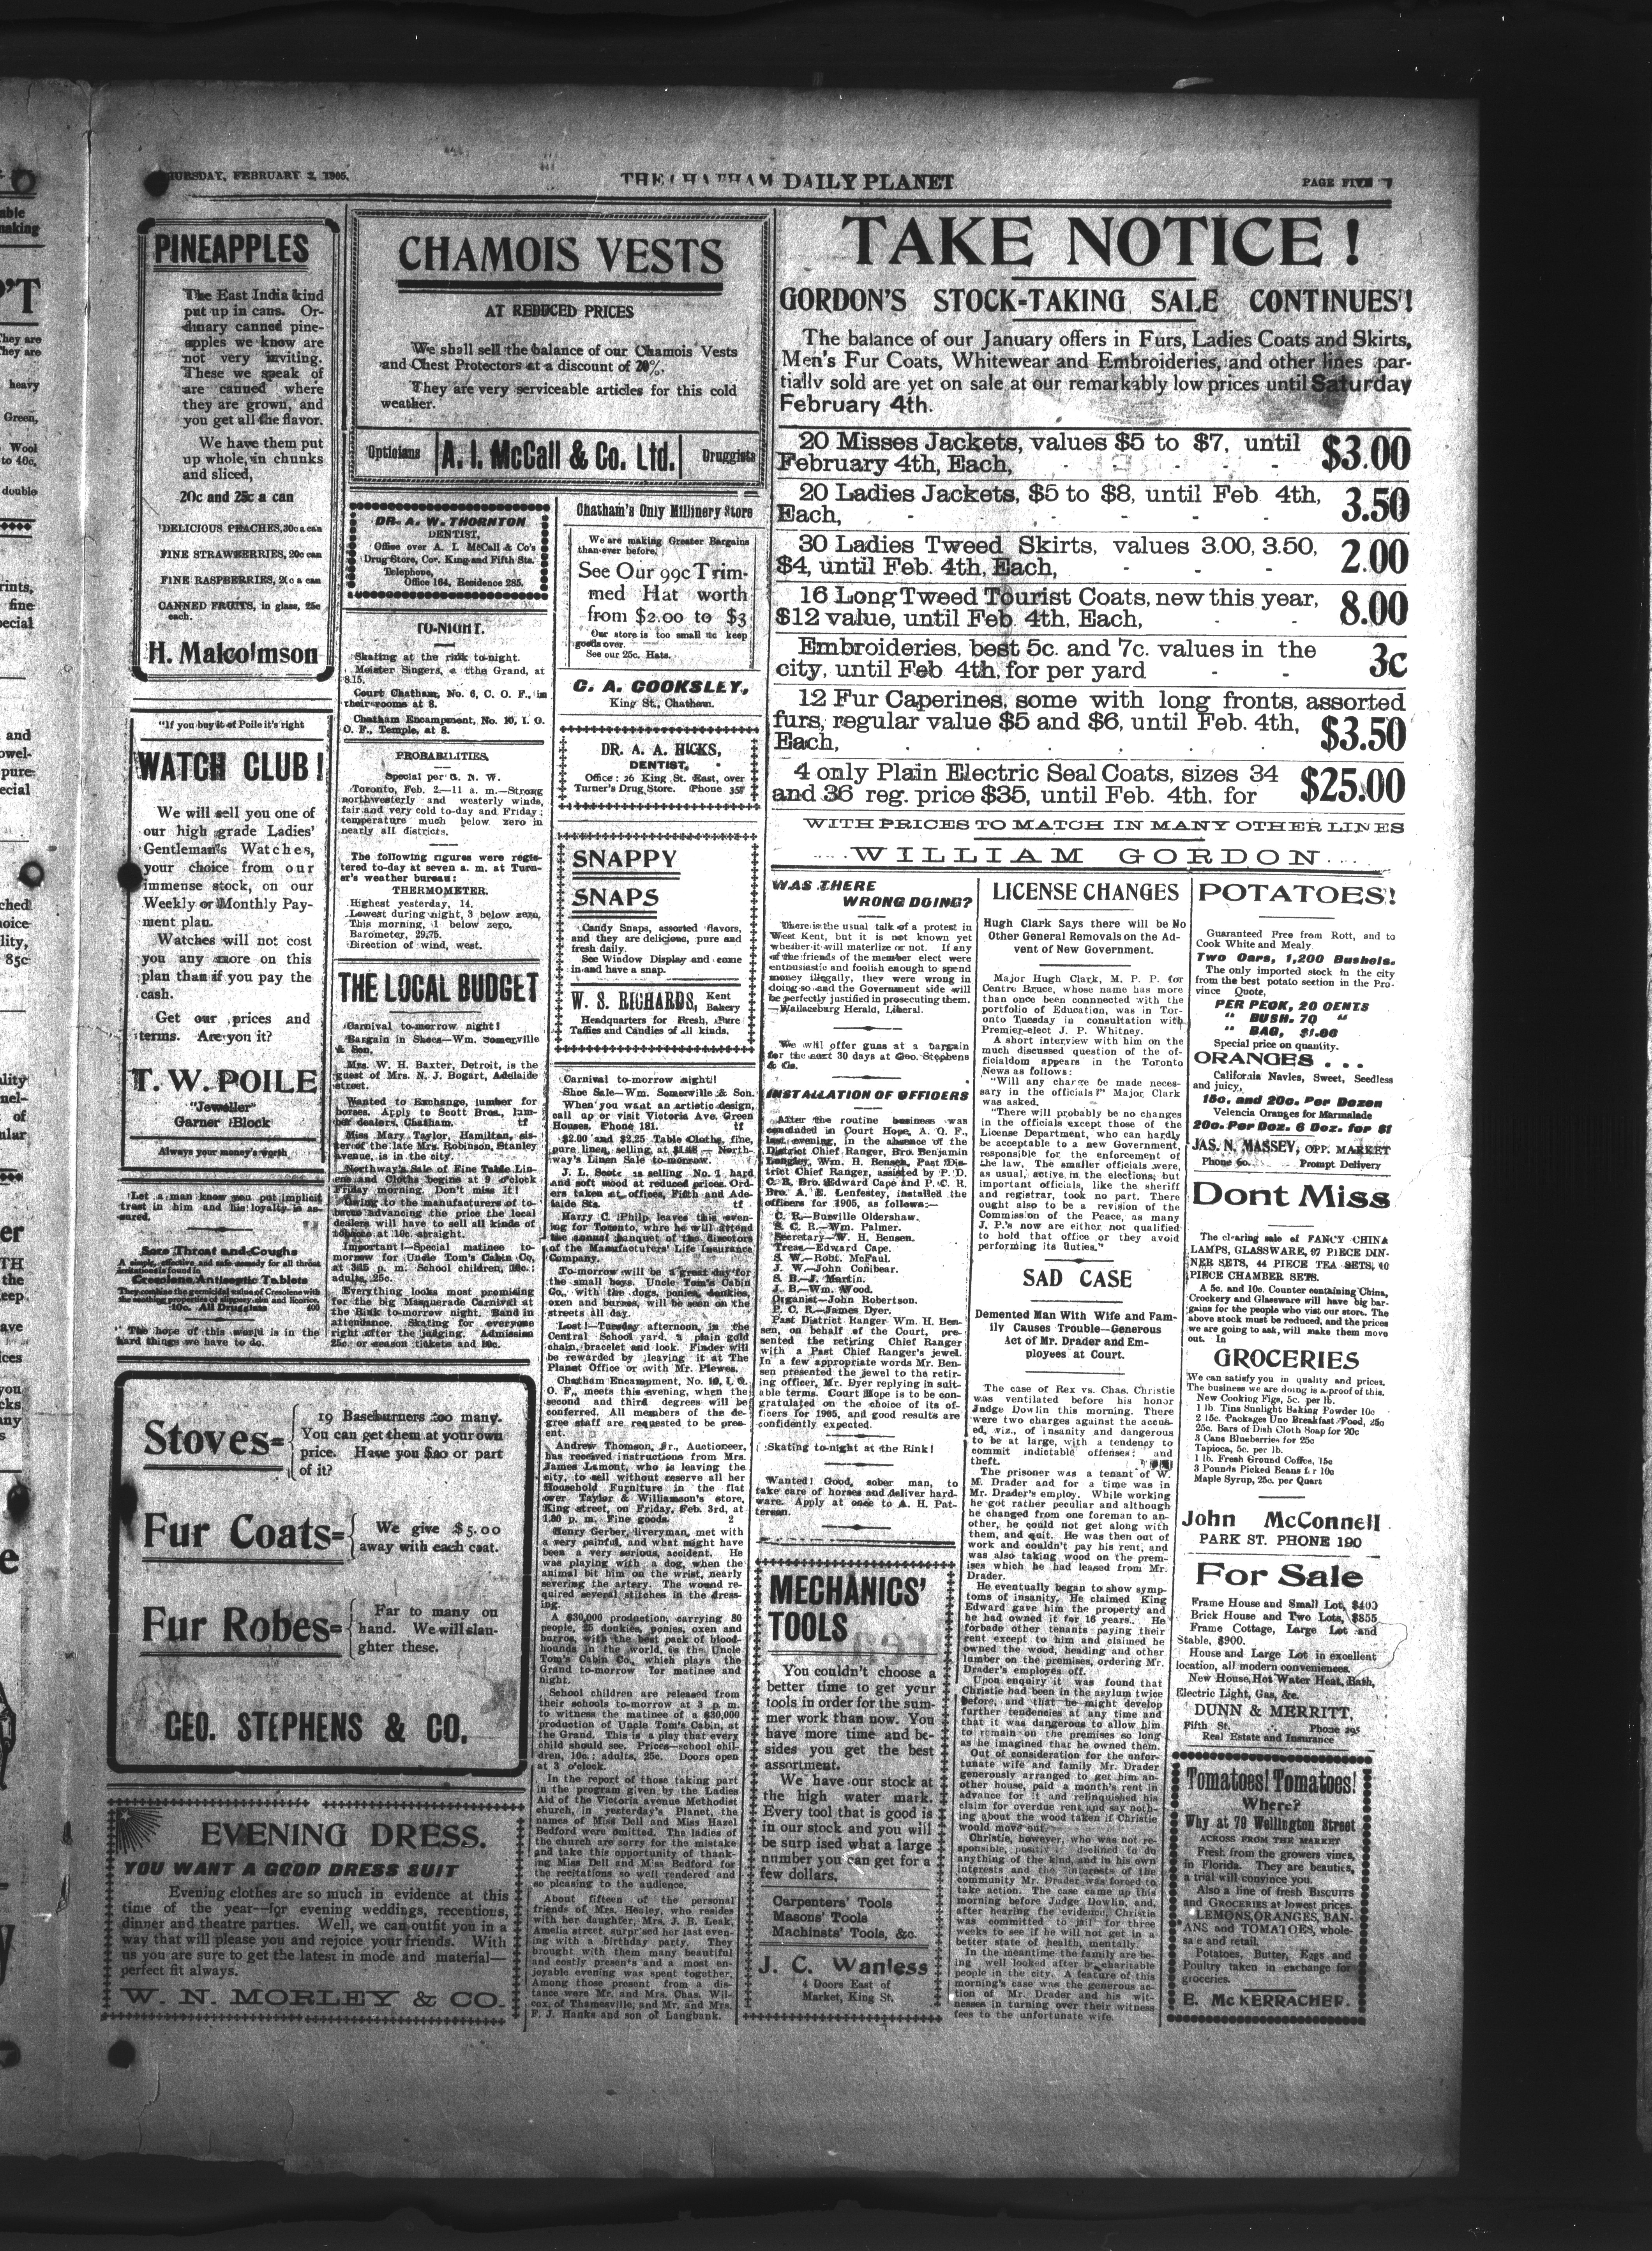 THURSDAY, FEBRUARY 2, 1905.
THE CHATHAM DAILY PLANET
PAGE FIVE
PINEAPPLES
The East India kind
put up in cans. Or-
dinary canned pine-
apples we know are
not very inviting.
These we speak of
are canned where
they are grown, and
you get all the flavor.
We have them put
up whole, in chunks
and sliced,
20c and 25c a can
DELICIOUS PEACHES, 30c a can
FINE STRAWBERRIES, 20c can
FINE RASPBERRIES, 20c a can
CANNED FRUITS, in glass, 25c
each.
H. Malcolmson
"If you buy it of Poile it's right
WATCH CLUB!
We will sell you one of
our high grade Ladies'
Gentleman's Watches,
your choice from our
immense stock, on our
Weekly or Monthly Pay-
ment plan.
Watches will not cost
you any more on this
plan than if you pay the
cash.
Get our prices and
terms. Are you it?
T. W. POILE
"Jeweller"
Garner Block
Always your money's worth
Let a man know you put implicit
trust in him and his loyalty is as-
sured.
Sore Throat and Coughs
A simple, effective and safe remedy for all throat
irritations is found in
Cresolene Antiseptic Tablets
They combine the germicidal value of Cresolene with
the soothing properties of slippery elm and licorice.
10c. All Druggists 400
The hope of this world is in the
hard things we have to do.
CHAMOIS VESTS
AT REDUCED PRICES
We shall sell the balance of our Chamois Vests
and Chest Protectors at a discount of 20%.
They are very serviceable articles for this cold
weather.
Opticians A. I. McCall & Co. Ltd. Druggists
DR. A. W. THORNTON
DENTIST,
Office over A. I. McCall & Co's
Drug Store, Cor. King and Fifth Sts.
Telephone,
Office 164, Residence 285.
TO-NIGHT.
Skating at the rink to-night.
Meister Singers, a tthe Grand, at
8.15.
Court Chatham, No. 6, C. O. F., in
their rooms at 8.
Chatham Encampment, No. 10, I. O.
O. F., Temple, at 8.
PROBABILITIES.
Special per G. N. W.
Toronto, Feb. 2.—11 a. m.—Strong
northwesterly and westerly winds,
fair and very cold to-day and Friday;
temperature much below zero in
nearly all districts.
The following figures were regis-
tered to-day at seven a. m. at Turn-
er's weather bureau:
THERMOMETER.
Highest yesterday, 14.
Lowest during night, 3 below zero.
This morning, 1 below zero.
Barometer, 29.75.
Direction of wind, west.
THE LOCAL BUDGET
Carnival to-morrow night!
Bargain in Shoes—Wm. Somerville
& Son.
Mrs. W. H. Baxter, Detroit, is the
guest of Mrs. N. J. Bogart, Adelaide
street.
Wanted to Exchange, lumber for
horses. Apply to Scott Bros., lum-
ber dealers, Chatham. tf
Miss Mary Taylor, Hamilton, sis-
ter of the late Mrs. Robinson, Stanley
Avenue, is in the city.
Northway's Sale of Fine Table Lin-
ens and Cloths begins at 9 o'clock
Friday morning. Don't miss it!
Owing to the manufacturers of to-
bacco advancing the price the local
dealers will have to sell all kinds of
tobacco at 10c. straight.
Important!—Special matinee to-
morrow for Uncle Tom's Cabin Co.
at 3.15 p. m. School children, 10c.;
adults, 25c.
Everything looks most promising
for the big Masquerade Carnival at
the Rink to-morrow night. Band in
attendance. Skating for everyone
right after the judging. Admission
25c. or season tickets and 10c.
Chatham's Only Millinery Store
We are making Greater Bargains
than ever before.
See Our 99c Trim-
med Hat worth
from $2.00 to $3
Our store is too small to keep
goods over.
See our 25c. Hats.
C. A. COOKSLEY,
King St., Chatham.
DR. A. A. HICKS,
DENTIST,
Office: 26 King St. East, over
Turner's Drug Store. Phone 357
SNAPPY
SNAPS
Candy Snaps, assorted flavors,
and they are delicious, pure and
fresh daily.
See Window Display and come
in and have a snap.
W. S. RICHARDS, Kent
Bakery
Headquarters for Fresh, Pure
Taffies and Candies of all kinds.
Carnival to-morrow night!
Shoe Sale—Wm. Somerville & Son.
When you want an artistic design,
call up or visit Victoria Ave. Green
Houses. Phone 181. tf
$2.00 and $2.25 Table Cloths, fine,
pure linen, selling at $1.48 — North-
way's Linen Sale to-morrow.
J. L. Scott is selling No. 1 hard
and soft wood at reduced prices. Ord-
ers taken at offices, Fifth and Ade-
laide Sts. tf
Harry C. Philp leaves this even-
ing for Toronto, whre he will attend
the annual banquet of the directors
of the Manufacturers' Life Insurance
Company.
To-morrow will be a great day for
the small boys. Uncle Tom's Cabin
Co., with the dogs, ponies, donkies,
oxen and burses, will be seen on the
streets all day.
Lost!—Tuesday afternoon, in the
Central School yard, a plain gold
chain, bracelet and lock. Finder will
be rewarded by leaving it at The
Planet Office or with Mr. Plewes.
Chatham Encampment, No. 10, I. O.
O. F., meets this evening, when the
second and third degrees will be
conferred. All members of the de-
gree staff are requested to be pres-
ent.
Andrew Thomson, Jr., Auctioneer,
has received instructions from Mrs.
James Lamont, who is leaving the
city, to sell without reserve all her
Household Furniture in the flat
over Taylor & Williamson's store,
King street, on Friday, Feb. 3rd, at
1.30 p. m. Fine goods. 2
Henry Gerber, liveryman, met with
a very painful, and what might have
been a very serious, accident. He
was playing with a dog, when the
animal bit him on the wrist, nearly
severing the artery. The wound re-
quired several stitches in the dress-
ing.
A $30,000 production, carrying 80
people, 25 donkies, ponies, oxen and
burros, with the best pack of blood-
hounds in the world, is the Uncle
Tom's Cabin Co., which plays the
Grand to-morrow for matinee and
night.
School children are released from
their schools to-morrow at 3 p. m.
to witness the matinee of a $30,000
production of Uncle Tom's Cabin, at
the Grand. This is a play that every
child should see. Prices—school chil-
dren, 10c.; adults, 25c. Doors open
at 3 o'clock.
In the report of those taking part
in the program given by the Ladies
Aid of the Victoria avenue Methodist
church, in yesterday's Planet, the
names of Miss Dell and Miss Hazel
Bedford were omitted. The ladies of
the church are sorry for the mistake
and take this opportunity of thank-
ing Miss Dell and Miss Bedford for
the recitations so well rendered and
so pleasing to the audience.
About fifteen of the personal
friends of Mrs. Healey, who resides
with her daughter, Mrs. J. B. Leak,
Amelia street, surprised her last even-
ing with a birthday party. They
brought with them many beautiful
and costly presents and a most en-
joyable evening was spent together.
Among those present from a dis-
tance were Mr. and Mrs. Chas. Wil-
cox, of Thamesville, and Mr. and Mrs.
F. J. Hanks and son of Langbank.
Stoves= 19 Baseburners too many.
You can get them at your own
price. Have you $20 or part
of it?
Fur Coats= We give $5.00
away with each coat.
Fur Robes= Far to many on
hand. We will slau-
ghter these.
GEO. STEPHENS & CO.
EVENING DRESS.
YOU WANT A GOOD DRESS SUIT
Evening clothes are so much in evidence at this
time of the year—for evening weddings, receptions,
dinner and theatre parties. Well, we can outfit you in a
way that will please you and rejoice your friends. With
us you are sure to get the latest in mode and material—
perfect fit always.
W. N. MORLEY & CO.
TAKE NOTICE!
GORDON'S STOCK-TAKING SALE CONTINUES!
The balance of our January offers in Furs, Ladies Coats and Skirts,
Men's Fur Coats, Whitewear and Embroideries, and other lines par-
tially sold are yet on sale at our remarkably low prices until Saturday
February 4th.
20 Misses Jackets, values $5 to $7, until
February 4th, Each, - - - - - $3.00
20 Ladies Jackets, $5 to $8, until Feb 4th,
Each, - - - - - 3.50
30 Ladies Tweed Skirts, values 3.00, 3.50,
$4, until Feb. 4th, Each, - - - 2.00
16 Long Tweed Tourist Coats, new this year,
$12 value, until Feb. 4th, Each, - - 8.00
Embroideries, best 5c. and 7c. values in the
city, until Feb 4th, for per yard - - 3c
12 Fur Caperines, some with long fronts, assorted
furs, regular value $5 and $6, until Feb. 4th,
Each, . . . . . . $3.50
4 only Plain Electric Seal Coats, sizes 34
and 36 reg. price $35, until Feb. 4th. for $25.00
WITH PRICES TO MATCH IN MANY OTHER LINES
....WILLIAM GORDON....
WAS THERE
WRONG DOING?
There is the usual talk of a protest in
West Kent, but it is not known yet
whether it will materlize or not. If any
of the friends of the member elect were
enthusiastic and foolish enough to spend
money illegally, they were wrong in
doing so and the Government side will
be perfectly justified in prosecuting them.
—Wallaceburg Herald, Liberal.
We will offer guns at a bargain
for the next 30 days at Geo. Stephens
& Co.
INSTALLATION OF OFFICERS
After the routine business was
concluded in Court Hope, A. O. F.,
last evening, in the absence of the
District Chief Ranger, Bro. Benjamin
Longley, Wm. H. Bensen, Past Dis-
trict Chief Ranger, assisted by P. D.
C. R. Bro. Edward Cape and P. C. R.
Bro. A. E. Lenfestey, installed the
officers for 1905, as follows:—
C. R.—Burville Oldershaw.
S. C. R.—Wm. Palmer.
Secretary—W. H. Bensen.
Treas—Edward Cape.
S. W.—Robt. McFaul.
J. W.—John Conibear.
S. B.—J. Martin.
J. B.—Wm. Wood.
Organist—John Robertson.
P. C. R.—James Dyer.
Past District Ranger Wm. H. Ben-
sen, on behalf of the Court, pre-
sented the retiring Chief Ranger
with a Past Chief Ranger's jewel.
In a few appropriate words Mr. Ben-
sen presented the jewel to the retir-
ing officer, Mr. Dyer replying in suit-
able terms. Court Hope is to be con-
gratulated on the choice of its of-
ficers for 1905, and good results are
confidently expected.
Skating to-night at the Rink!
Wanted! Good, sober man, to
take care of horses and deliver hard-
ware. Apply at once to A. H. Pat-
terson.
MECHANICS'
TOOLS
You couldn't choose a
better time to get your
tools in order for the sum-
mer work than now. You
have more time and be-
sides you get the best
assortment.
We have our stock at
the high water mark.
Every tool that is good is
in our stock and you will
be surp ised what a large
number you can get for a
few dollars.
Carpenters' Tools
Masons' Tools
Machinsts' Tools, &c.
J. C. Wanless
4 Doors East of
Market, King St.
LICENSE CHANGES
Hugh Clark Says there will be No
Other General Removals on the Ad-
vent of New Government.
Major Hugh Clark, M. P. P. for
Centre Bruce, whose name has more
than once been connnected with the
portfolio of Education, was in Tor-
onto Tuesday in consultation with
Premier-elect J. P. Whitney.
A short interview with him on the
much discussed question of the of-
ficialdom appears in the Toronto
News as follows:
"Will any charge be made neces-
sary in the officials?" Major Clark
was asked.
"There will probably be no changes
in the officials except those of the
License Department, who can hardly
be acceptable to a new Government,
responsible for the enforcement of
the law. The smaller officials were,
as usual, active in the elections; but
important officials, like the sheriff
and registrar, took no part. There
ought also to be a revision of the
Commission of the Peace, as many
J. P.'s now are either not qualified
to hold that office or they avoid
performing its duties."
SAD CASE
Demented Man With Wife and Fam-
ily Causes Trouble—Generous
Act of Mr. Drader and Em-
ployees at Court.
The case of Rex vs. Chas. Christie
was ventilated before his honor
Judge Dowlin this morning. There
were two charges against the accus-
ed, viz., of insanity and dangerous
to be at large, with a tendency to
commit indictable offenses; and
theft.
The prisoner was a tenant of W.
M. Drader and for a time was in
Mr. Drader's employ. While working
he got rather peculiar and although
he changed from one foreman to an-
other, he could not get along with
them, and quit. He was then out of
work and couldn't pay his rent, and
was also taking wood on the prem-
ises which he had leased from Mr.
Drader.
He eventually began to show symp-
toms of insanity. He claimed King
Edward gave him the property and
he had owned it for 16 years. He
forbade other tenants paying their
rent except to him and claimed he
owned the wood, heading and other
lumber on the premises, ordering Mr.
Drader's employes off.
Upon enquiry it was found that
Christie had been in the asylum twice
before, and that he might develop
further tendencies at any time and
that it was dangerous to allow him
to remain on the premises so long
as he imagined that he owned them.
Out of consideration for the unfor-
tunate wife and family Mr. Drader
generously arranged to get him an-
other house, paid a month's rent in
advance for it and relinquished his
claim for overdue rent and say noth-
ing about the wood taken if Christie
would move out.
Christie, however, who was not re-
sponsible, positiv declined to do
anything of the kind, and in his own
interests and the interests of the
community Mr. Drader was forced to
take action. The case came up this
morning before Judge Dowlin, and,
after hearing the evidence, Christie
was committed to jail for three
weeks to see if he will not get in a
better state of health, mentally.
In the meantime the family are be-
ing well looked after by charitable
people in the city. A feature of this
morning's case was the generous ac-
tion of Mr. Drader and his wit-
nesses in turning over their witness
fees to the unfortunate wife.
POTATOES!
Guaranteed Free from Rott, and to
Cook White and Mealy
Two Cars, 1,200 Bushels.
The only imported stock in the city
from the best potato section in the Pro-
vince Quote,
PER PECK, 20 CENTS
" BUSH. 70 "
" BAG, $1.00
Special price on quantity.
ORANGES . . .
California Navles, Sweet, Seedless
and juicy,
15c. and 20c. Per Dozen
Velencia Oranges for Marmalade
20c. Per Doz. 6 Doz. for $1
JAS. N. MASSEY, OPP. MARKET
Phone 60. Prompt Delivery
Dont Miss
The clearing sale of FANCY CHINA
LAMPS, GLASSWARE, 97 PIECE DIN-
NER SETS, 44 PIECE TEA SETS, 10
PIECE CHAMBER SETS.
A 5c. and 10c. Counter containing China,
Crockery and Glassware will have big bar-
gains for the people who visit our store. The
above stock must be reduced, and the prices
we are going to ask, will make them move
out. In
GROCERIES
We can satisfy you in quality and prices.
The business we are doing is a proof of this.
New Cooking Figs, 5c. per lb.
1 lb. Tins Sunlight Baking Powder 10c
2 15c. Packages Uno Breakfast Food, 25c
25c. Bars of Dish Cloth Soap for 20c
3 Cans Blueberries for 25c
Tapioca, 5c. per lb.
1 lb. Fresh Ground Coffee, 15c
3 Pounds Picked Beans f r 10c
Maple Syrup, 25c. per Quart
John McConnell
PARK ST. PHONE 190
For Sale
Frame House and Small Lot, $400
Brick House and Two Lots, $855
Frame Cottage, Large Lot and
Stable, $900.
House and Large Lot in excellent
location, all modern conveniences.
New House, Hot Water Heat, Bath,
Electric Light, Gas, &c.
DUNN & MERRITT,
Fifth St. Phone 295
Real Estate and Insurance
Tomatoes! Tomatoes!
Where?
Why at 79 Wellington Street
ACROSS FROM THE MARKET
Fresh from the growers vines,
in Florida. They are beauties,
a trial will convince you.
Also a line of fresh BISCUITS
and GROCERIES at lowest prices.
LEMONS, ORANGES, BAN-
ANS and TOMATOES, whole-
sa e and retail.
Potatoes, Butter, Eggs and
Poultry taken in exchange for
groceries.
E. McKERRACHER.